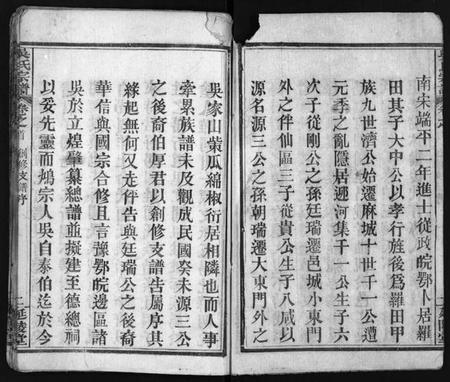 南宋端平二年進士從政皖鄂卜居羅
田其子大中公以孝行旌後爲羅田甲
族九世濟公始遷麻城十世千一公遭
元季之亂隱居迎河集千一公生子六
次子從剛公之孫廷瑞遷邑城小東門
外之伴仙區三子從貴公生子八咸以
源名源三公之孫朝瑞遷大東門外之
吳家山紫瓜綿椒衍居相隣也而人事
牽累族譜未及觀成民國癸未源三公
之後裔伯厚君以創修支譜告屬序其
緣起無何又走伴告與廷瑞公之後裔
華信與國宗合修且言豫鄂皖邊區諸
吳於立煌肇纂總譜並擬建至德總祠
以妥先靈而鳩宗人吳自泰伯迄於今
吳氏宗譜
卷之首 創修支譜序
二 延陵堂